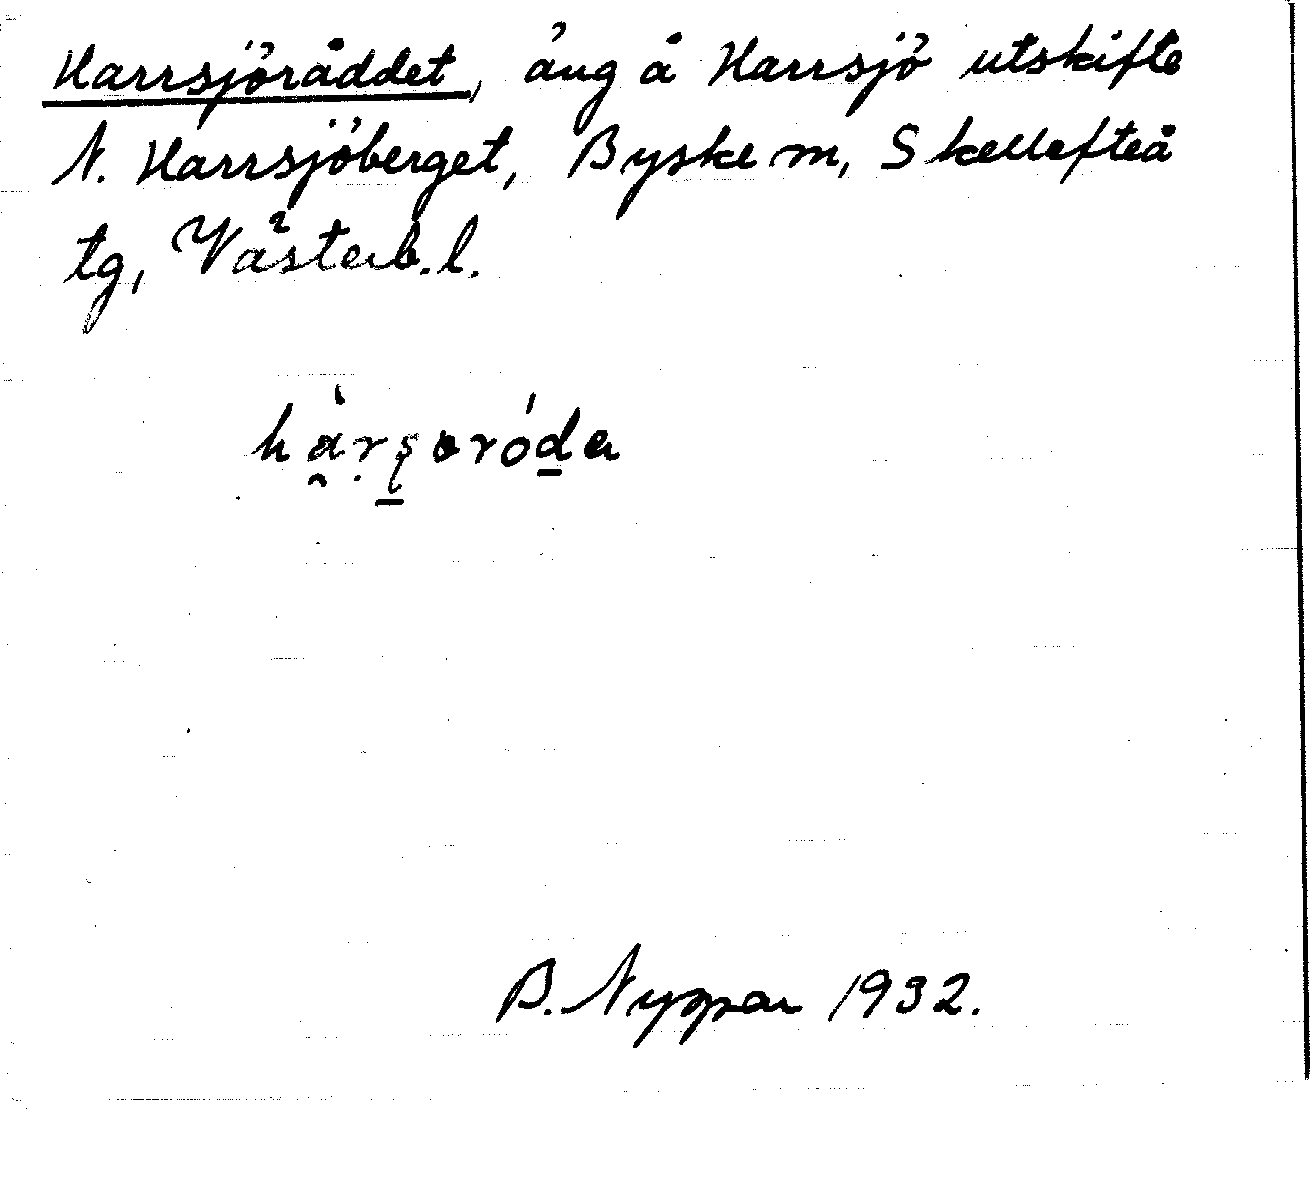 Harrsjöråddet, äng å Harrsjö utskifte
N. Harrsjöberget, Byske m, Skellefteå
tg, Västerb. l.
B. Nyman 1932.